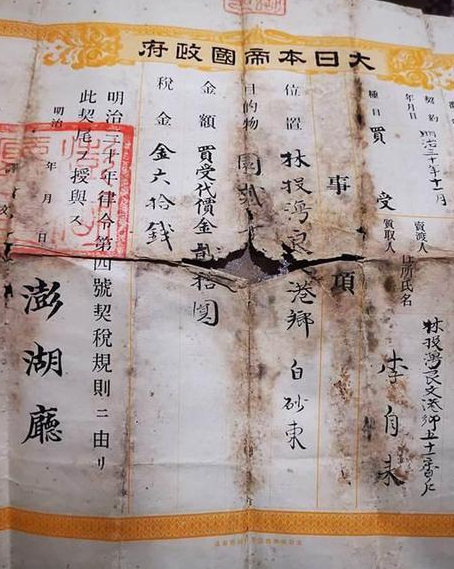 大日本帝國政府
契約年月日 明治三十年十二月
賣渡人
質取人 住所氏名
林投灣良文港鄉五十二番戶
李自來
種目 買受
事項
位置 林投灣良 港鄉 白砂東
目的物 園
金額 買受代價金貳拾圓
稅金 金六拾錢
明治三十年律令第四號契稅規則ニ由リ
此契尾ヲ授與ス
明治 年 月 日
澎湖廳